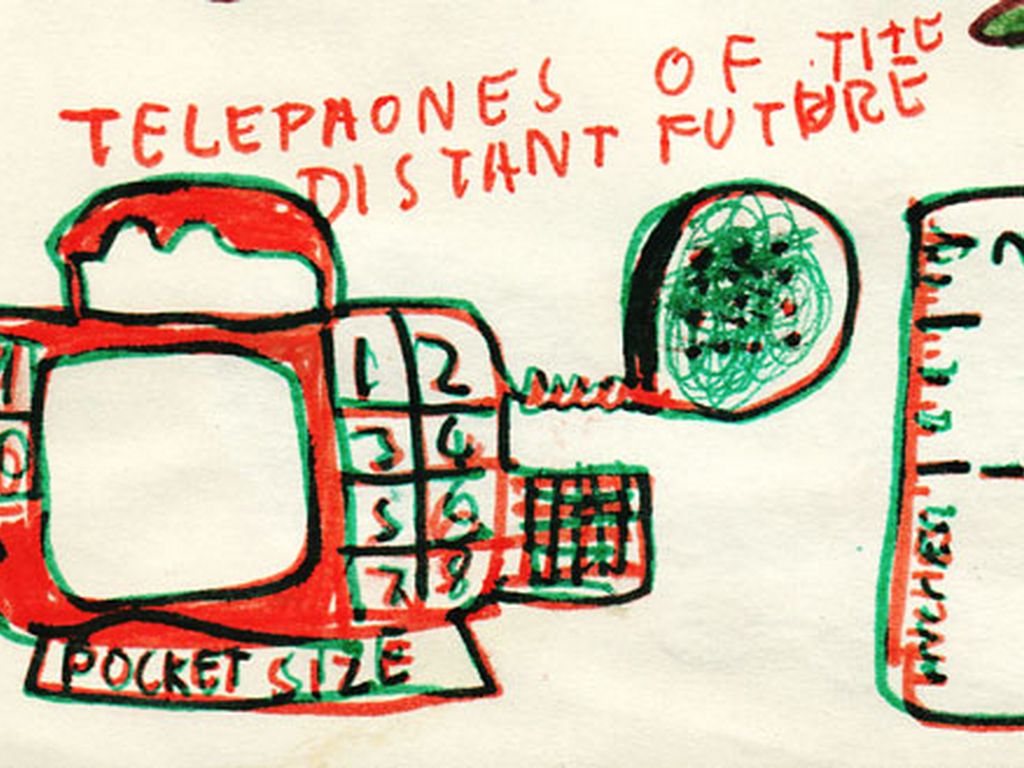 TELEPHONES OF THE
DISTANT FUTURE
1 2
3 4
5 6
7 8
9
0
POCKET SIZE
INCHES
2
1